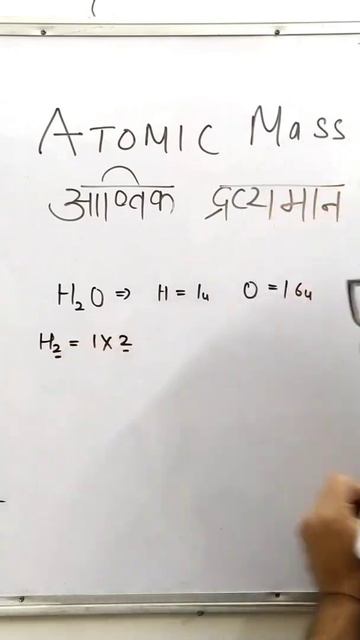 ATOMIC Mass
आण्विक द्रव्यमान
H₂O ⇒ H = 1u O = 16u
H₂ = 1×2